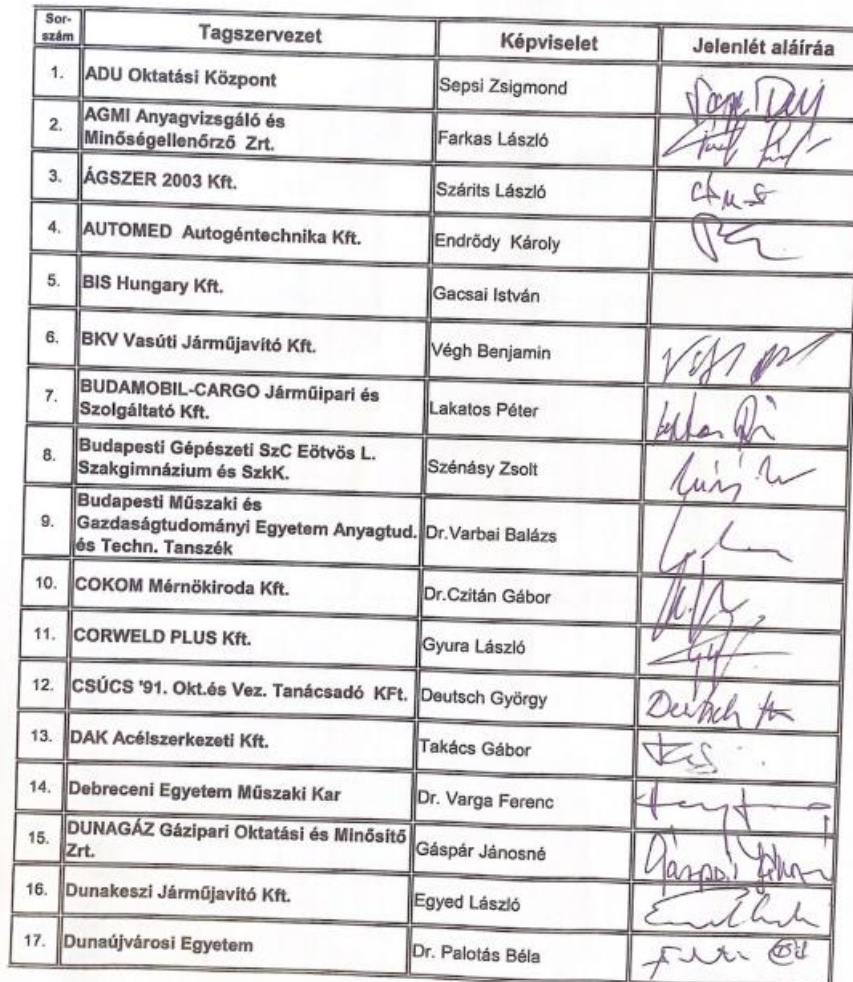 Sor-
szám Tagszervezet Képviselet Jelenlét aláíráa
1. ADU Oktatási Központ Sepsi Zsigmond
2. AGMI Anyagvizsgáló és
Minőségellenőrző Zrt. Farkas László
3. ÁGSZER 2003 Kft. Szárits László
4. AUTOMED Autogéntechnika Kft. Endrődy Károly
5. BIS Hungary Kft. Gacsai István
6. BKV Vasúti Járműjavító Kft. Végh Benjamin
7. BUDAMOBIL-CARGO Járműipari és
Szolgáltató Kft. Lakatos Péter
8. Budapesti Gépészeti SzC Eötvös L.
Szakgimnázium és SzkK. Szénásy Zsolt
9. Budapesti Műszaki és
Gazdaságtudományi Egyetem Anyagtud. Dr.Varbai Balázs
és Techn. Tanszék
10. COKOM Mérnökiroda Kft. Dr.Czitán Gábor
11. CORWELD PLUS Kft. Gyura László
12. CSÚCS '91. Okt.és Vez. Tanácsadó KFt. Deutsch György Deutsch
13. DAK Acélszerkezeti Kft. Takács Gábor
14. Debreceni Egyetem Műszaki Kar Dr. Varga Ferenc
15. DUNAGÁZ Gázipari Oktatási és Minősítő
Zrt. Gáspár Jánosné
16. Dunakeszi Járműjavító Kft. Egyed László
17. Dunaújvárosi Egyetem Dr. Palotás Béla